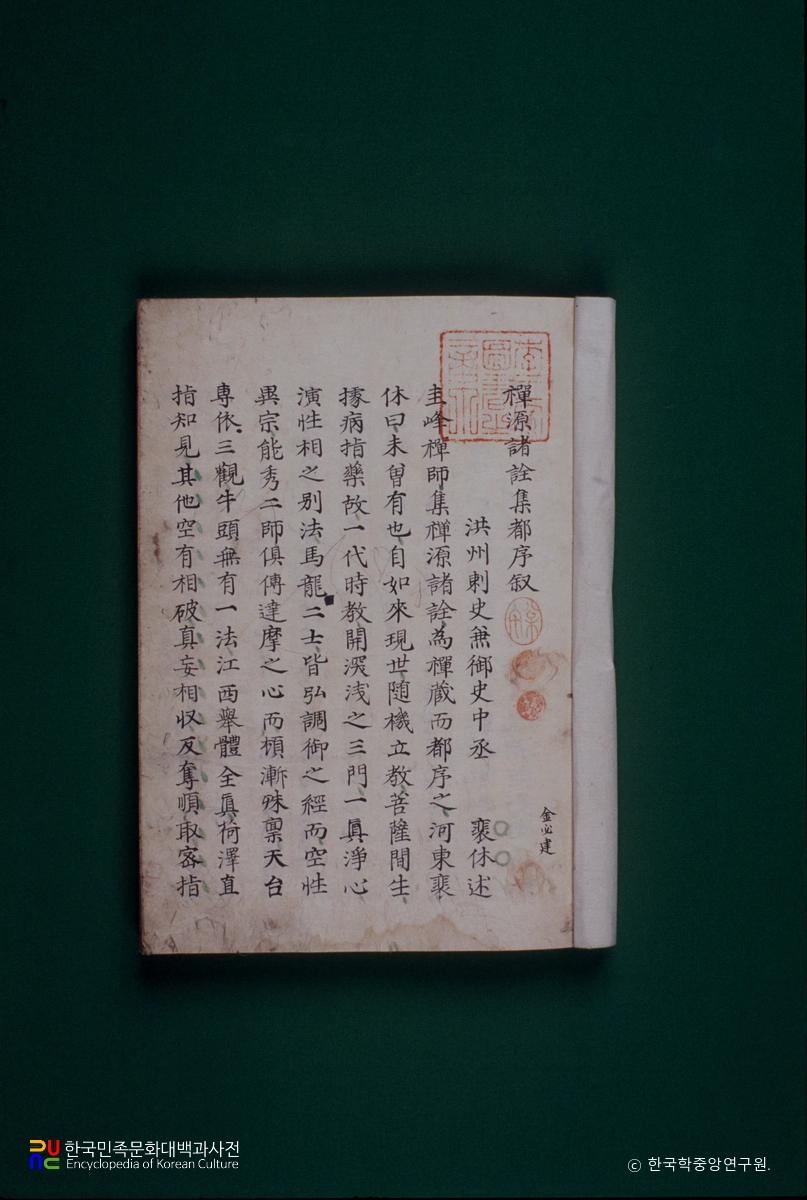 禪源諸詮集都序叙
洪州刺史兼御史中丞 裴休述
圭峰禪師集禪源諸詮為禪藏而都序之河東裴
休曰未曾有也自如來現世随機立教菩薩間生
據病指藥故一代時教開深浅之三門一眞淨心
演性相之别法馬龍二士皆弘調御之經而空性
異宗能秀二師俱傳達摩之心而頓漸殊禀天台
專依三觀牛頭無有一法江西舉體全眞荷澤直
指知見其他空有相破真妄相収反奪順取宻指
金必建
한국민족문화대백과사전
Encyclopedia of Korean Culture
ⓒ 한국학중앙연구원.